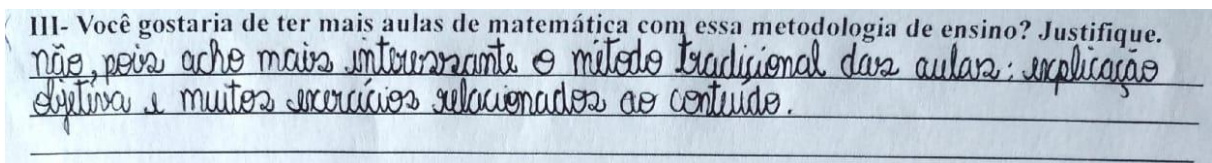 III- Você gostaria de ter mais aulas de matemática com essa metodologia de ensino? Justifique.
não, pois acho mais interessante o método tradicional das aulas: explicação
objetiva e muitos exercícios relacionados ao conteúdo.